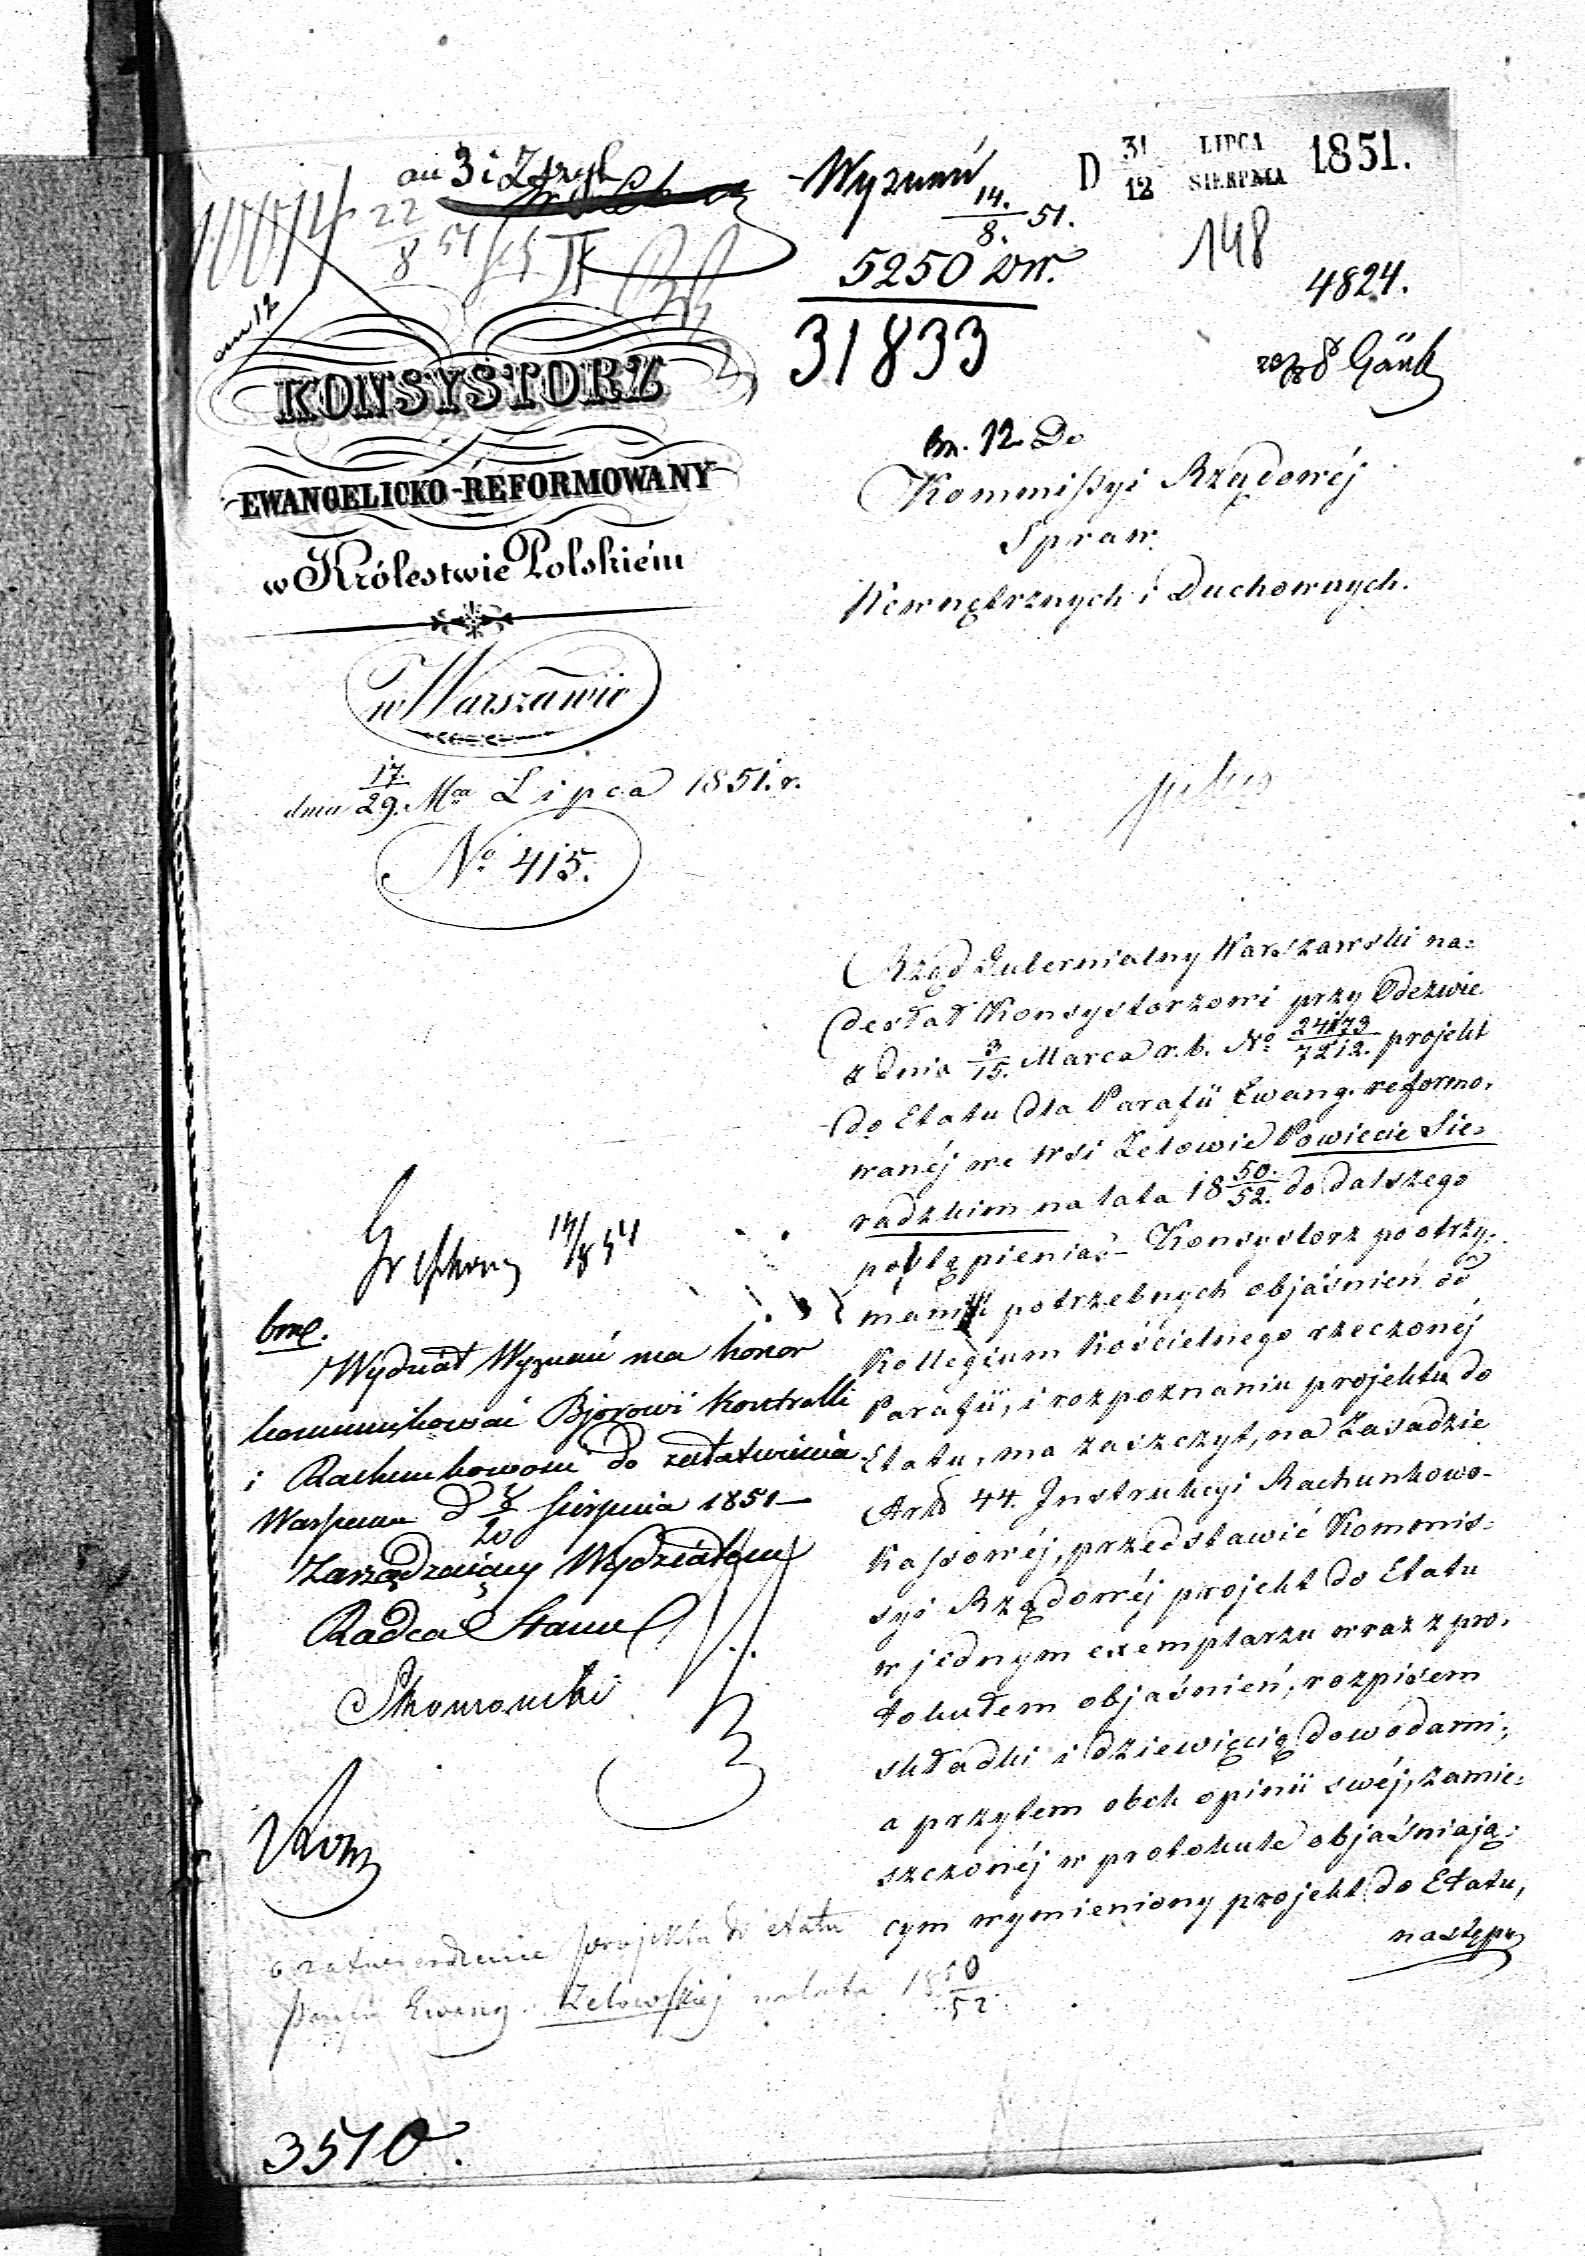 Wyznań
14./8. 51.
5250 WW.
31833
D 31/12 LIPCA SIERPNIA 1851.
148
4824.
22/8 51
KONSYSTORZ
EWANGELICKO-REFORMOWANY
w Królestwie Polskiém
w Warszawie
dnia 17./29. Mca Lipca 1851. r.
No 415.
12. Do
Kommissyi Rządowéj
Spraw
Wewnętrznych i Duchownych.
Rząd Gubernialny Warszawski na=
desłał Konsystorzowi przy Odezwie
z dnia 3/15. Marca r. b. No 24173/7212. projekt
do Etatu dla Parafii Ewang. reformo.
wanéj we wsi Zelowie Powiecie Sie=
radzkim na lata 18 50./52. do dalszego
postąpienia – Konsystorz po otrzy=
maniu potrzebnych objaśnień od
Kollegium Kościelnego rzeczonéj
Parafii, i rozpoznaniu projektu do
Etatu, ma zaszczyt, na Zasadzie
Artł 44. Instrukcyi Rachunkowo-
Kassowéj, przedstawić Kommis=
syi Rządowéj projekt do Etatu
w jednym exemplarzu wraz z pro.
tokułem objaśnień, rozpisem
składki i dziewięcią dowodami;
a przytem obok opinii swéj, zamie=
szczonéj w protokule objaśniają=
cym wymieniony projekt do Etatu,
następu
14/8 51
bmę.
Wydział Wyznań ma honor
kommunikować Bjórowi Kontrolli
i Rachunkowości do załatwienia
Warszawa d 8/20 Sierpnia 1851 –
Zarządzaiący Wydziałem
Radca Stanu
o zatwierdzenie projektu do etatu
Parafii Ewang. Zelowskiej na lata 18 50/52
3510.